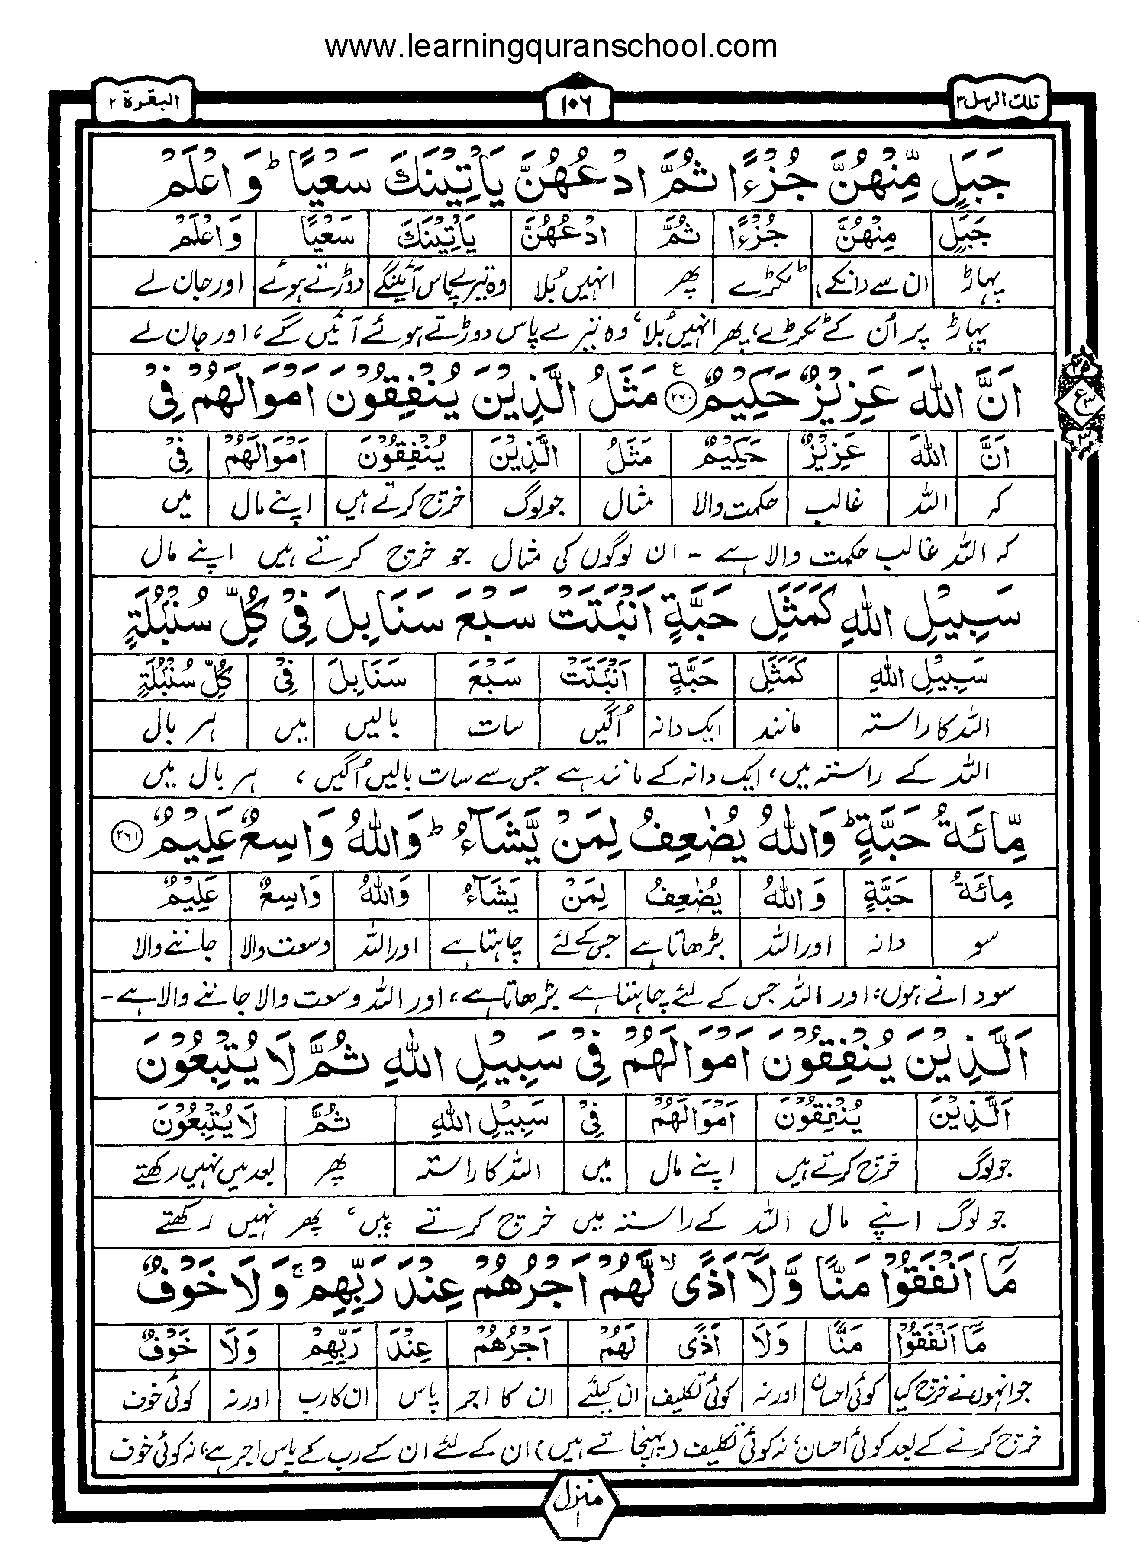 www.learningquranschool.com
تلك الرسل ٣
١٠٦
البقرة ٢
جَبَلٍ مِّنْهُنَّ جُزْءًا ثُمَّ ادْعُهُنَّ يَأْتِيْنَكَ سَعْيًا ؕ وَاعْلَمْ
جَبَلٍ مِنْهُنَّ جُزْءًا ثُمَّ ادْعُهُنَّ يَأْتِيْنَكَ سَعْيًا وَاعْلَمْ
پہاڑ ان سے (انکے) ٹکڑے پھر انہیں بُلا وہ تیرے پاس آئینگے دوڑتے ہوئے اور جان لے
پہاڑ پر اُن کے ٹکڑے، پھر انہیں بُلا، وہ تیرے پاس دوڑتے ہوئے آئیں گے، اور جان لے
اَنَّ اللّٰهَ عَزِيْزٌ حَكِيْمٌ ﴿٢٦٠﴾ مَثَلُ الَّذِيْنَ يُنْفِقُوْنَ اَمْوَالَهُمْ فِيْ
ع
٣
اَنَّ اللّٰهَ عَزِيْزٌ حَكِيْمٌ مَثَلُ الَّذِيْنَ يُنْفِقُوْنَ اَمْوَالَهُمْ فِيْ
کہ اللہ غالب حکمت والا مثال جو لوگ خرچ کرتے ہیں اپنے مال میں
کہ اللہ غالب حکمت والا ہے - ان لوگوں کی مثال جو خرچ کرتے ہیں اپنے مال
سَبِيْلِ اللّٰهِ كَمَثَلِ حَبَّةٍ اَنْۢبَتَتْ سَبْعَ سَنَابِلَ فِيْ كُلِّ سُنْۢبُلَةٍ
سَبِيْلِ اللّٰهِ كَمَثَلِ حَبَّةٍ اَنْۢبَتَتْ سَبْعَ سَنَابِلَ فِيْ كُلِّ سُنْۢبُلَةٍ
اللہ کا راستہ مانند ایک دانہ اُگیں سات بالیں میں ہر بال
اللہ کے راستہ میں، ایک دانہ کے مانند ہے جس سے سات بالیں اُگیں، ہر بال میں
مِّائَةُ حَبَّةٍ ؕ وَاللّٰهُ يُضٰعِفُ لِمَنْ يَّشَآءُ ؕ وَاللّٰهُ وَاسِعٌ عَلِيْمٌ ﴿٢٦١﴾
مِائَةُ حَبَّةٍ وَاللّٰهُ يُضٰعِفُ لِمَنْ يَشَآءُ وَاللّٰهُ وَاسِعٌ عَلِيْمٌ
سو دانہ اور اللہ بڑھاتا ہے جس کے لئے چاہتا ہے اور اللہ وسعت والا جاننے والا
سو دانے ہوں، اور اللہ جس کے لئے چاہتا ہے بڑھاتا ہے، اور اللہ وسعت والا جاننے والا ہے -
اَلَّذِيْنَ يُنْفِقُوْنَ اَمْوَالَهُمْ فِيْ سَبِيْلِ اللّٰهِ ثُمَّ لَا يُتْبِعُوْنَ
اَلَّذِيْنَ يُنْفِقُوْنَ اَمْوَالَهُمْ فِيْ سَبِيْلِ اللّٰهِ ثُمَّ لَا يُتْبِعُوْنَ
جو لوگ خرچ کرتے ہیں اپنے مال میں اللہ کا راستہ پھر بعد میں نہیں رکھتے
جو لوگ اپنے مال اللہ کے راستہ میں خرچ کرتے ہیں، پھر نہیں رکھتے
مَآ اَنْفَقُوْا مَنًّا وَّلَآ اَذًى ۙ لَّهُمْ اَجْرُهُمْ عِنْدَ رَبِّهِمْ ۚ وَلَا خَوْفٌ
مَآ اَنْفَقُوْا مَنًّا وَلَا اَذًى لَهُمْ اَجْرُهُمْ عِنْدَ رَبِّهِمْ وَلَا خَوْفٌ
جو انہوں نے خرچ کیا کوئی احسان اور نہ کوئی تکلیف ان کیلئے ان کا اجر پاس ان کا رب اور نہ کوئی خوف
خرچ کرنے کے بعد کوئی احسان، نہ کوئی تکلیف (پہنچاتے ہیں) ان کے لئے ان کے رب کے پاس اجر ہے، نہ کوئی خوف
منزل ١